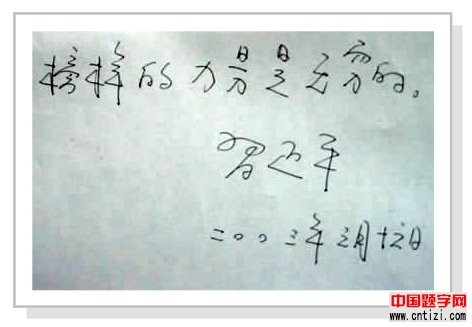 榜样的力量是无穷的。
习近平
二〇〇三年 月十 日
中国题字网
www.cntizi.com